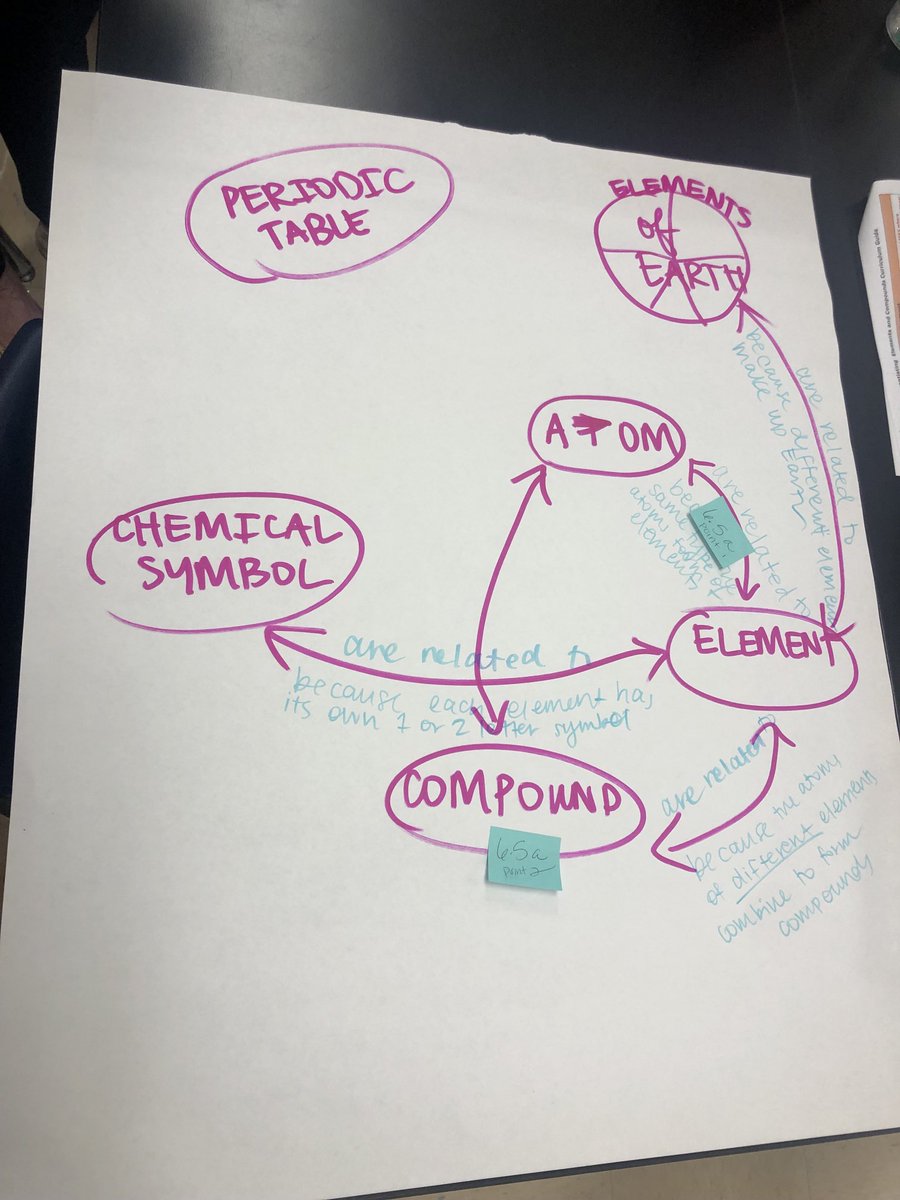 PERIODIC
TABLE
ELEMENTS
of
EARTH
are related to
because different elements
make up Earth
ATOM
are related to
same type of
atoms
elements
6.5a
point 1
CHEMICAL
SYMBOL
ELEMENT
are related to
because each element has
its own 1 or 2 letter symbol
COMPOUND
6.5a
point 2
are related to
because the atoms
of different elements
combine to form
compounds
Elements and Compounds Curriculum Guide